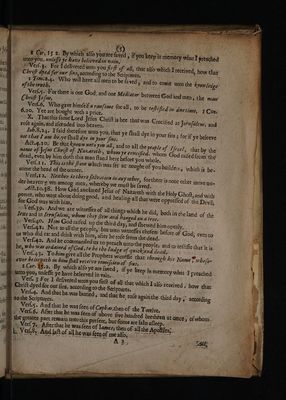 (5)
1 Cor. 15 2. By which also you are saved, if you keep in memory what I preached
unto you, unlesse ye have believed in vain.
Vers. 3. For I delivered unto you first of all, that also which I received, how that
Christ dyed for our sins, according to the Scriptures.
1 Tim. 2.4. Who will have all men to be saved, and to come unto the knowledge
of the truth.
Vers. 5. For there is one God, and one Mediator between God and men, the man
Christ Jesus.
Vers. 6. Who gave himself a ransome for all, to be testified in due time. 1 Cor.
6.20. Yee are bought with a price.
X. That this same Lord Jesus Christ is hee that was Crucified at Jerusalem, and
rose again, and ascended into heaven.
Joh. 8.24. I said therefore unto you, that ye shall dye in your sins; for if ye believe
not that I am he, ye shall dye in your sins.
Act. 4.10. Be that known unto you all, and to all the people of Israel, that by the
name of Jesus Christ of Nazareth, whom ye crucified, whom God raised from the
dead, even by him doth this man stand here before you whole.
Vers. 11. This is the stone which was set at nought of you builders, which is be-
come the head of the corner.
Vers. 12. Neither is there salvation in any other, for there is none other name un-
der heaven given among men, whereby we must be saved.
Act. 10.38. How God anointed Jesus of Nazareth with the Holy Ghost, and with
power, who went about doing good, and healing all that were oppressed of the Devil,
for God was with him.
Vers. 39. And we are witnesses of all things which he did, both in the land of the
Jews and in Jerusalem, whom they slew and hanged on a tree.
Vers. 40. Him God raised up the third day, and shewed him openly.
Vers. 41. Not to all the people, but unto witnesses chosen before of God, even to
us who did eat and drink with him, after he rose from the dead.
Vers. 42. And he commanded us to preach unto the people, and to testifie that it is
he, who was ordained of God, to be the Judge of quick and dead.
Vers. 43. To him give all the Prophets witnesse that through his Name whoso-
ever believeth in him shall receive remission of sins.
1 Cor. 15.2. By which also ye are saved, if ye keep in memory what I preached
unto you, unlesse ye have believed in vain.
Vers. 3. For I delivered unto you first of all that which I also received, how that
Christ dyed for our sins, according to the Scriptures.
Vers. 4. And that he was buried, and that he rose again the third day, according
to the Scriptures.
Vers. 5. And that he was seen of Cephas, then of the Twelve.
Vers. 6. After that he was seen of above five hundred brethren at once, of whom
the greatest part remain unto this present, but some are faln asleep.
Vers. 7. After that he was seen of James, then of all the Apostles.
Vers. 8. And last of all he was seen of me also,
A 3